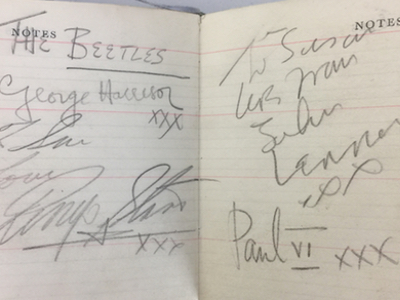 NOTES
THE BEETLES
George Harrison
xxx
Love
Ringo Starr
xxx
NOTES
To Susan
love from
John
Lennon
xx
Paul VI xxx